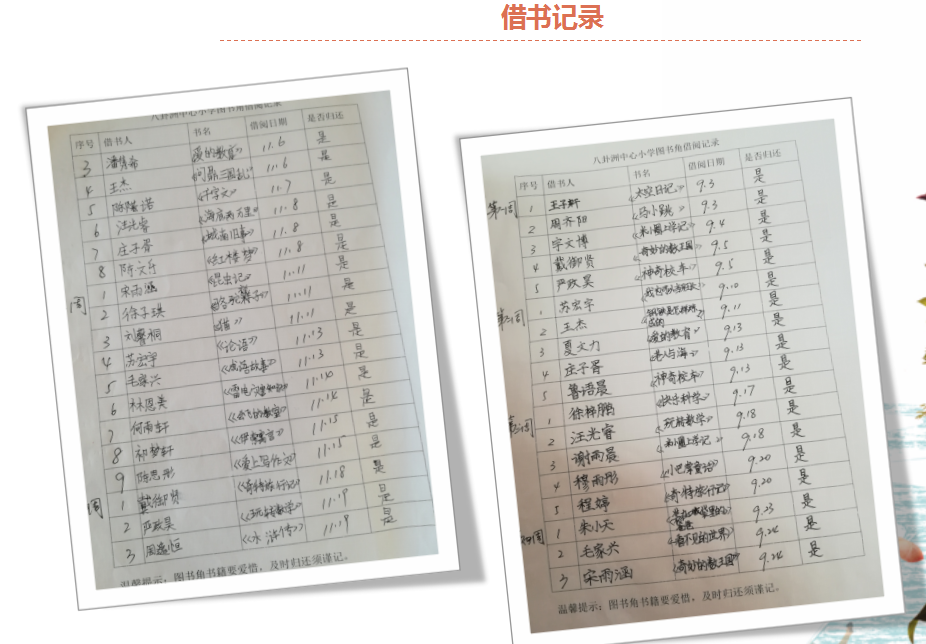 借书记录
八卦洲中心小学图书角借阅记录
序号 借书人 书名 借阅日期 是否归还
3 11.6 是
4 王杰 11.6 是
5 《千字文》 11.7 是
6 汪光睿 《海底两万里》 11.8 是
7 庄子胥 《城南旧事》 11.8 是
8 《红楼梦》 11.8 是
1 宋雨涵 《昆虫记》 11.11 是
周
2 徐子琪 11.11 是
3 11.11 是
4 苏宏宇 《论语》 11.13 是
5 毛家兴 《成语故事》 11.13 是
6 林恩美 11.14 是
7 何雨轩 《会飞的教室》 11.14 是
8 祁梦轩 《伊索寓言》 11.15 是
9 陈思彤 《爱上写作文》 11.15 是
周
1 戴御贤 《奇特旅行记》 11.18 是
2 严政昊 《玩转数学》 11.19 是
3 《水浒传》 11.19 是
温馨提示：图书角书籍要爱惜，及时归还须谨记。
八卦洲中心小学图书角借阅记录
序号 借书人 书名 借阅日期 是否归还
第一周
1 王子轩 《太空日记》 9.3 是
2 周齐阳 9.3 是
3 宇文博 《米小圈上学记》 9.4 是
4 戴御贤 《奇妙的数王国》 9.5 是
5 严政昊 《神奇校车》 9.5 是
第二周
1 苏宏宇 9.10 是
2 王杰 《钢铁是怎样炼成的》 9.11 是
3 夏文力 《爱的教育》 9.13 是
4 庄子胥 《老人与海》 9.13 是
5 鲁语晨 《神奇校车》 9.13 是
第三周
1 徐梓鹏 《快乐科学》 9.17 是
2 汪光睿 《玩转数学》 9.18 是
3 谢雨晨 《米小圈上学记》 9.18 是
4 穆雨彤 《小巴掌童话》 9.20 是
5 程婷 《奇特旅行记》 9.20 是
第四周
1 朱小天 9.23 是
2 毛家兴 《看不见的世界》 9.24 是
3 宋雨涵 《奇妙的数王国》 9.24 是
温馨提示：图书角书籍要爱惜，及时归还须谨记。